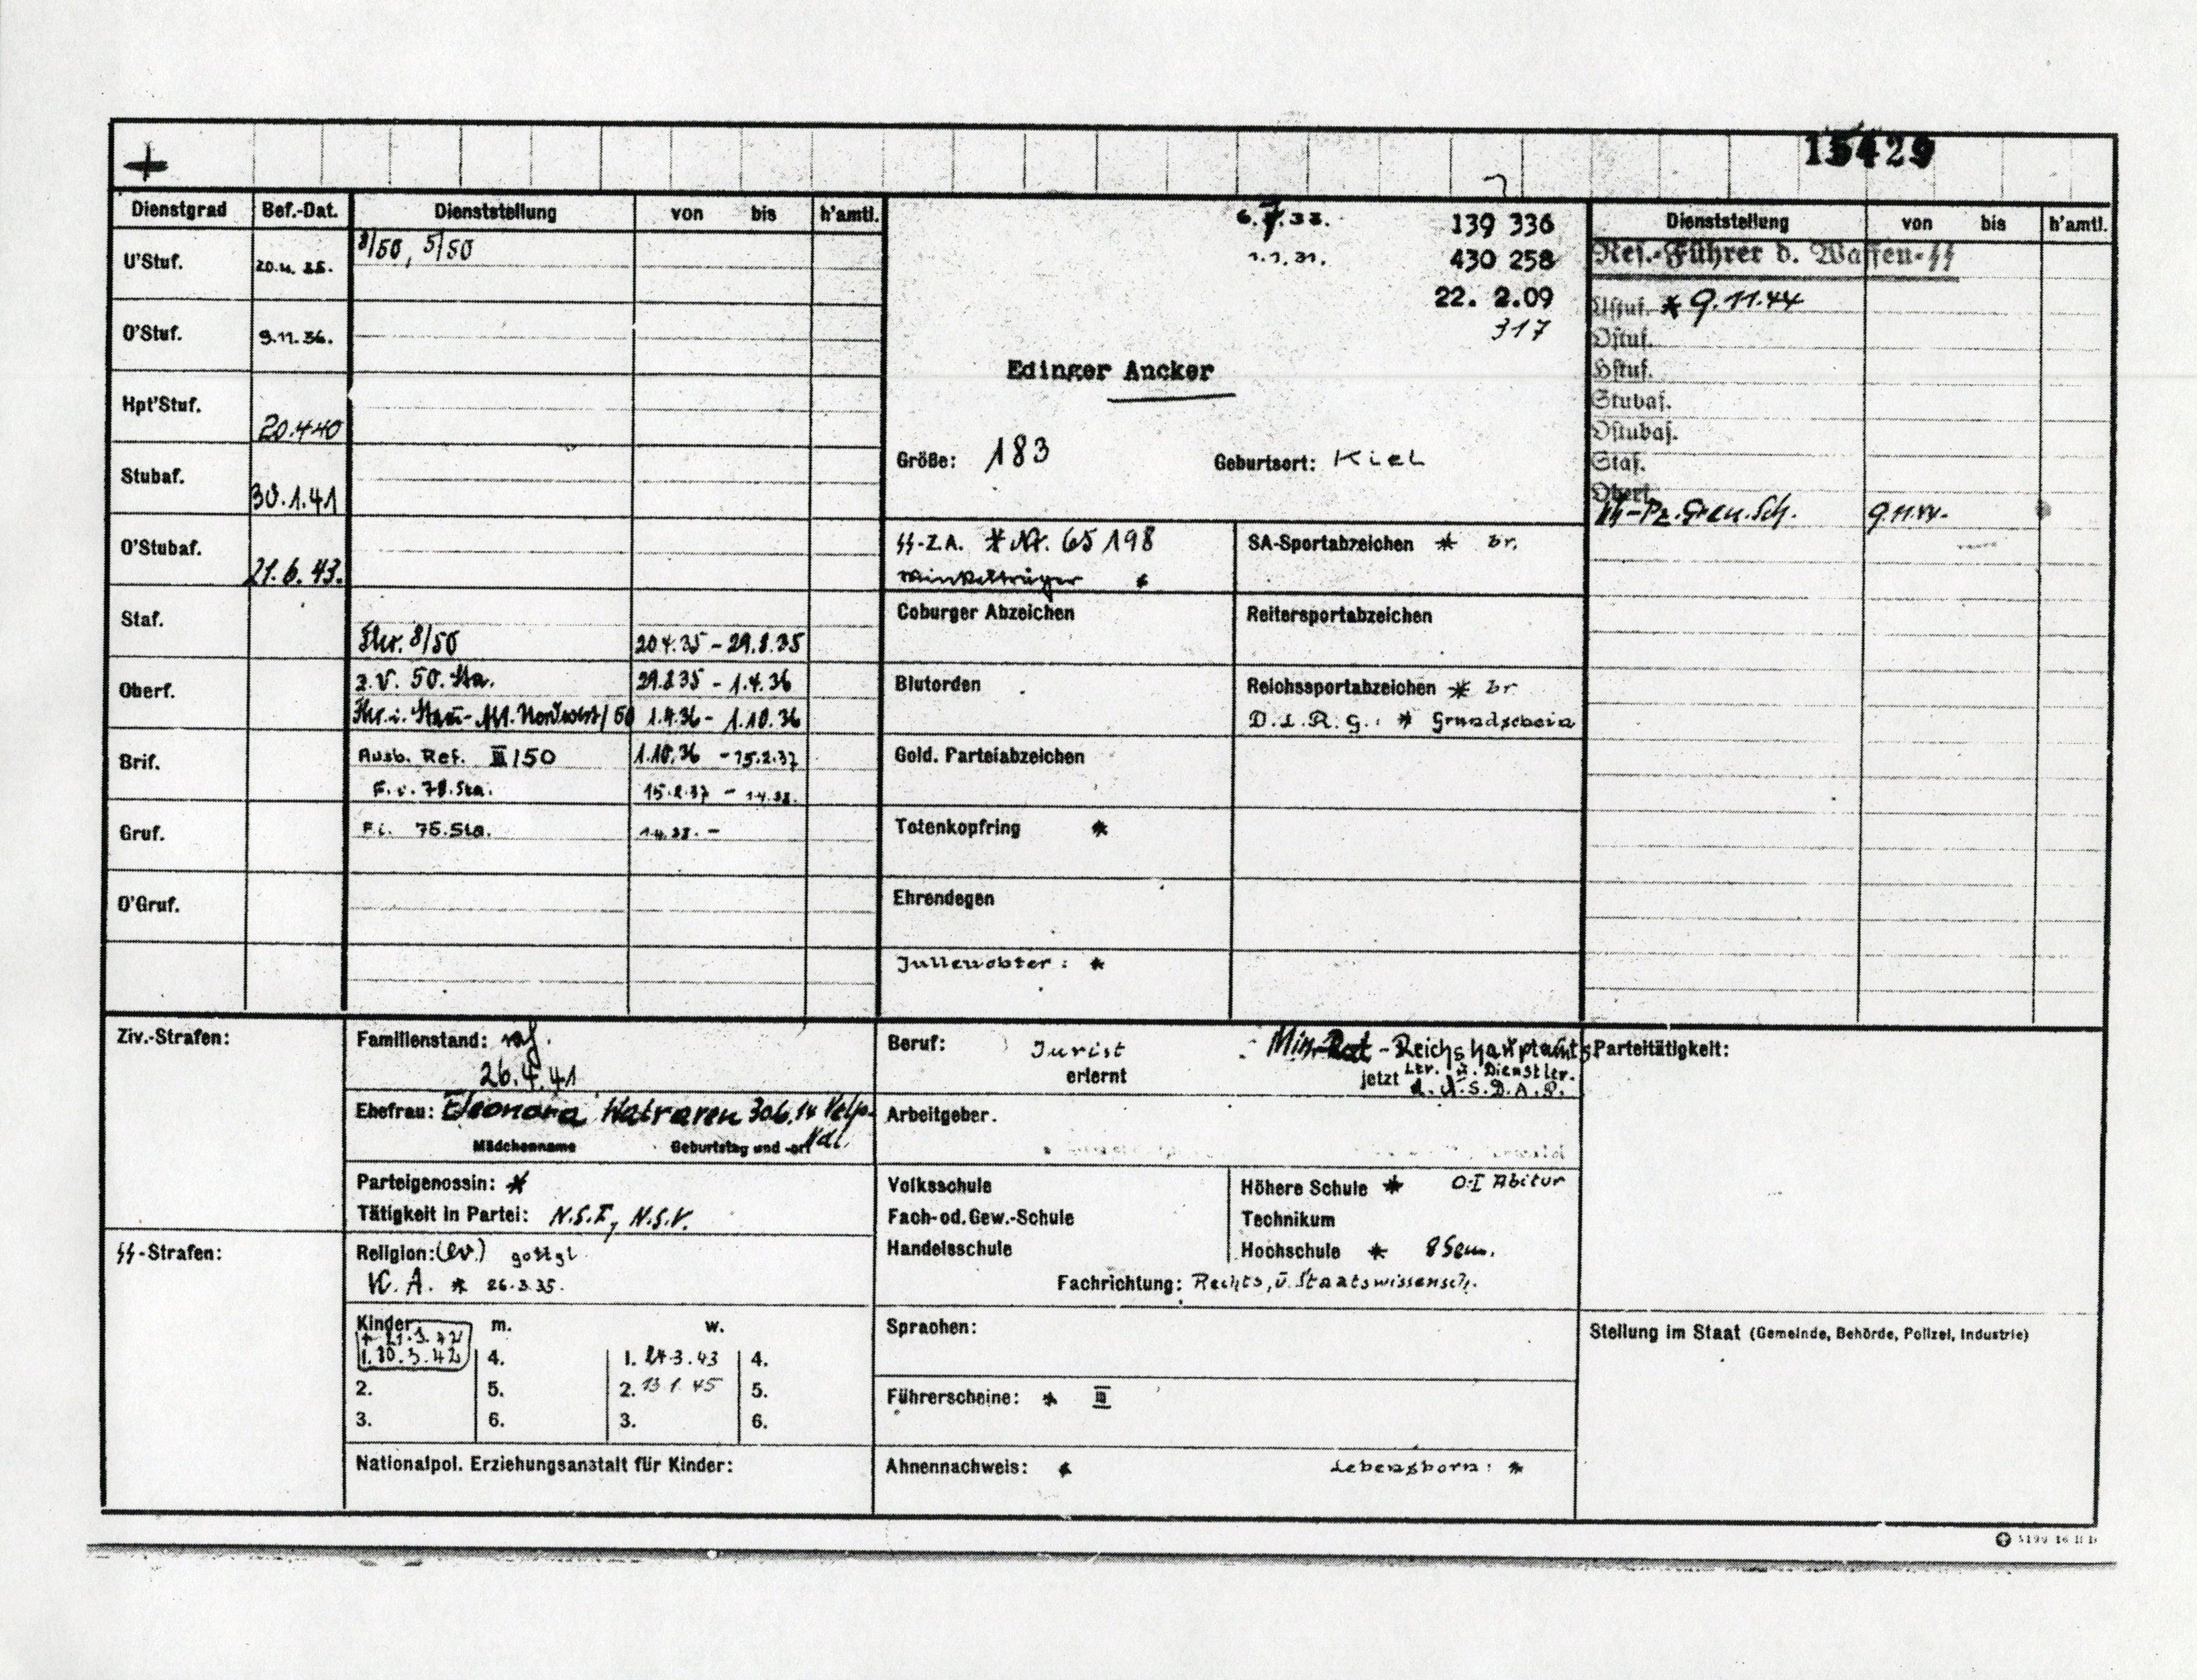 15429
Dienstgrad Bef.-Dat. Dienststellung von bis h'amtl.
U'Stuf. 8/50, 5/50
O'Stuf. 9.11.36.
Hpt'Stuf. 20.4.40
Stubaf. 30.1.41
O'Stubaf. 21.6.43.
Staf.
8/50 20.4.35 - 29.8.35
Oberf. z.V. 50. Sta. 29.8.35 - 1.4.36
1.4.36 - 1.10.36
Brif. Ausb. Ref. III/50 1.10.36 - 15.2.37
F.i. 78.Sta. 15.2.37 -
Gruf. F.i. 75.Sta. -
O'Gruf.
139 336
430 258
22. 2.09
317
Edinger Ancker
Größe: 183 Geburtsort: Kiel
SS-Z.A. * Nr. 65 198 SA-Sportabzeichen * br.
Winkelträger *
Coburger Abzeichen Reitersportabzeichen
Blutorden Reichssportabzeichen * br
D.L.R.G.: * Grundschein
Gold. Parteiabzeichen
Totenkopfring *
Ehrendegen
*
Dienststellung von bis h'amtl.
Res.-Führer d. Waffen-SS
Ustuf. * 9.11.44
Ostuf.
Hstuf.
Stubaf.
Ostubaf.
Staf.
Oberf.
SS-Pz.Gren.Sch. 9.11.44.
Ziv.-Strafen:
SS-Strafen:
Familienstand:
26.4.41
Ehefrau: Eleonora
Mädchenname Geburtstag und -ort
Parteigenossin: *
Tätigkeit in Partei: N.S.F, N.S.V.
Religion: (ev.) gottgl.
K.A. * 26.3.35.
Kinder m. w.
1. 30.3.42 4. 1. 4.
2. 5. 2. 13.1.45 5.
3. 6. 3. 6.
Nationalpol. Erziehungsanstalt für Kinder:
Beruf: Jurist Min.-Rat - Reichshauptamts
erlernt jetzt Ltr. u. Dienstltr.
d. N.S.D.A.P.
Arbeitgeber.
Volksschule Höhere Schule * O-I Abitur
Fach-od. Gew.-Schule Technikum
Handelsschule Hochschule * 8 Sem.
Fachrichtung: Rechts, u. Staatswissensch.
Sprachen:
Führerscheine: * III
Ahnennachweis: * Lebensborn: *
Parteitätigkeit:
Stellung im Staat (Gemeinde, Behörde, Polizei, Industrie)